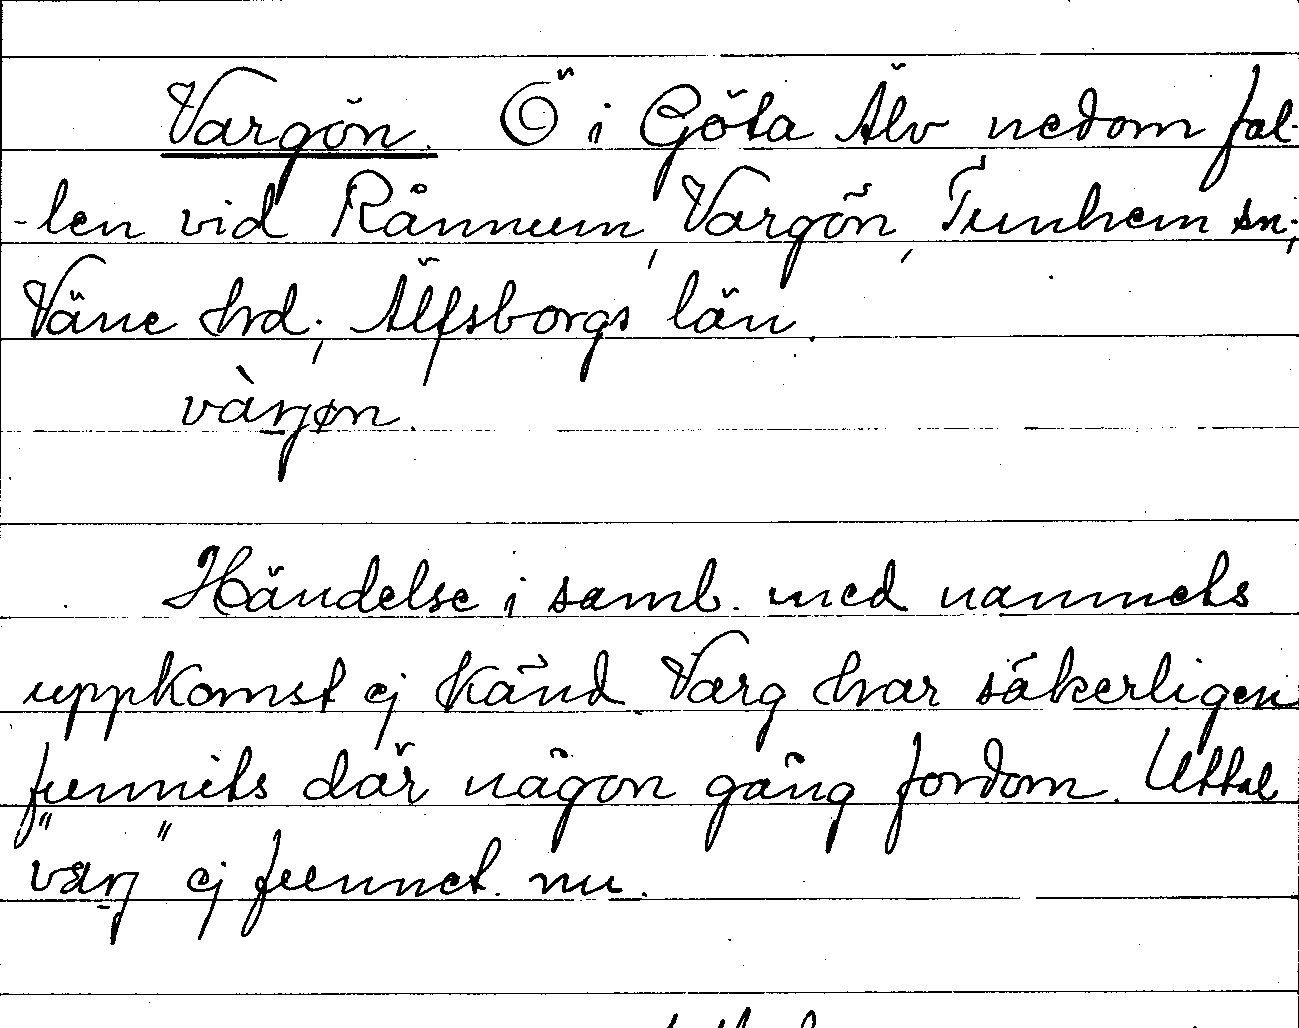 Vargön. Ö i Göta Älv nedom fal-
-len vid Rånnum, Vargön, Tunhem sn;
Väne hrd; Älfsborgs län.
vàrjøn.
Händelse i samb. med namnets
uppkomst ej känd. Varg har säkerligen
funnits där någon gång fordom. Uttal
"varj" ej funnet nu.